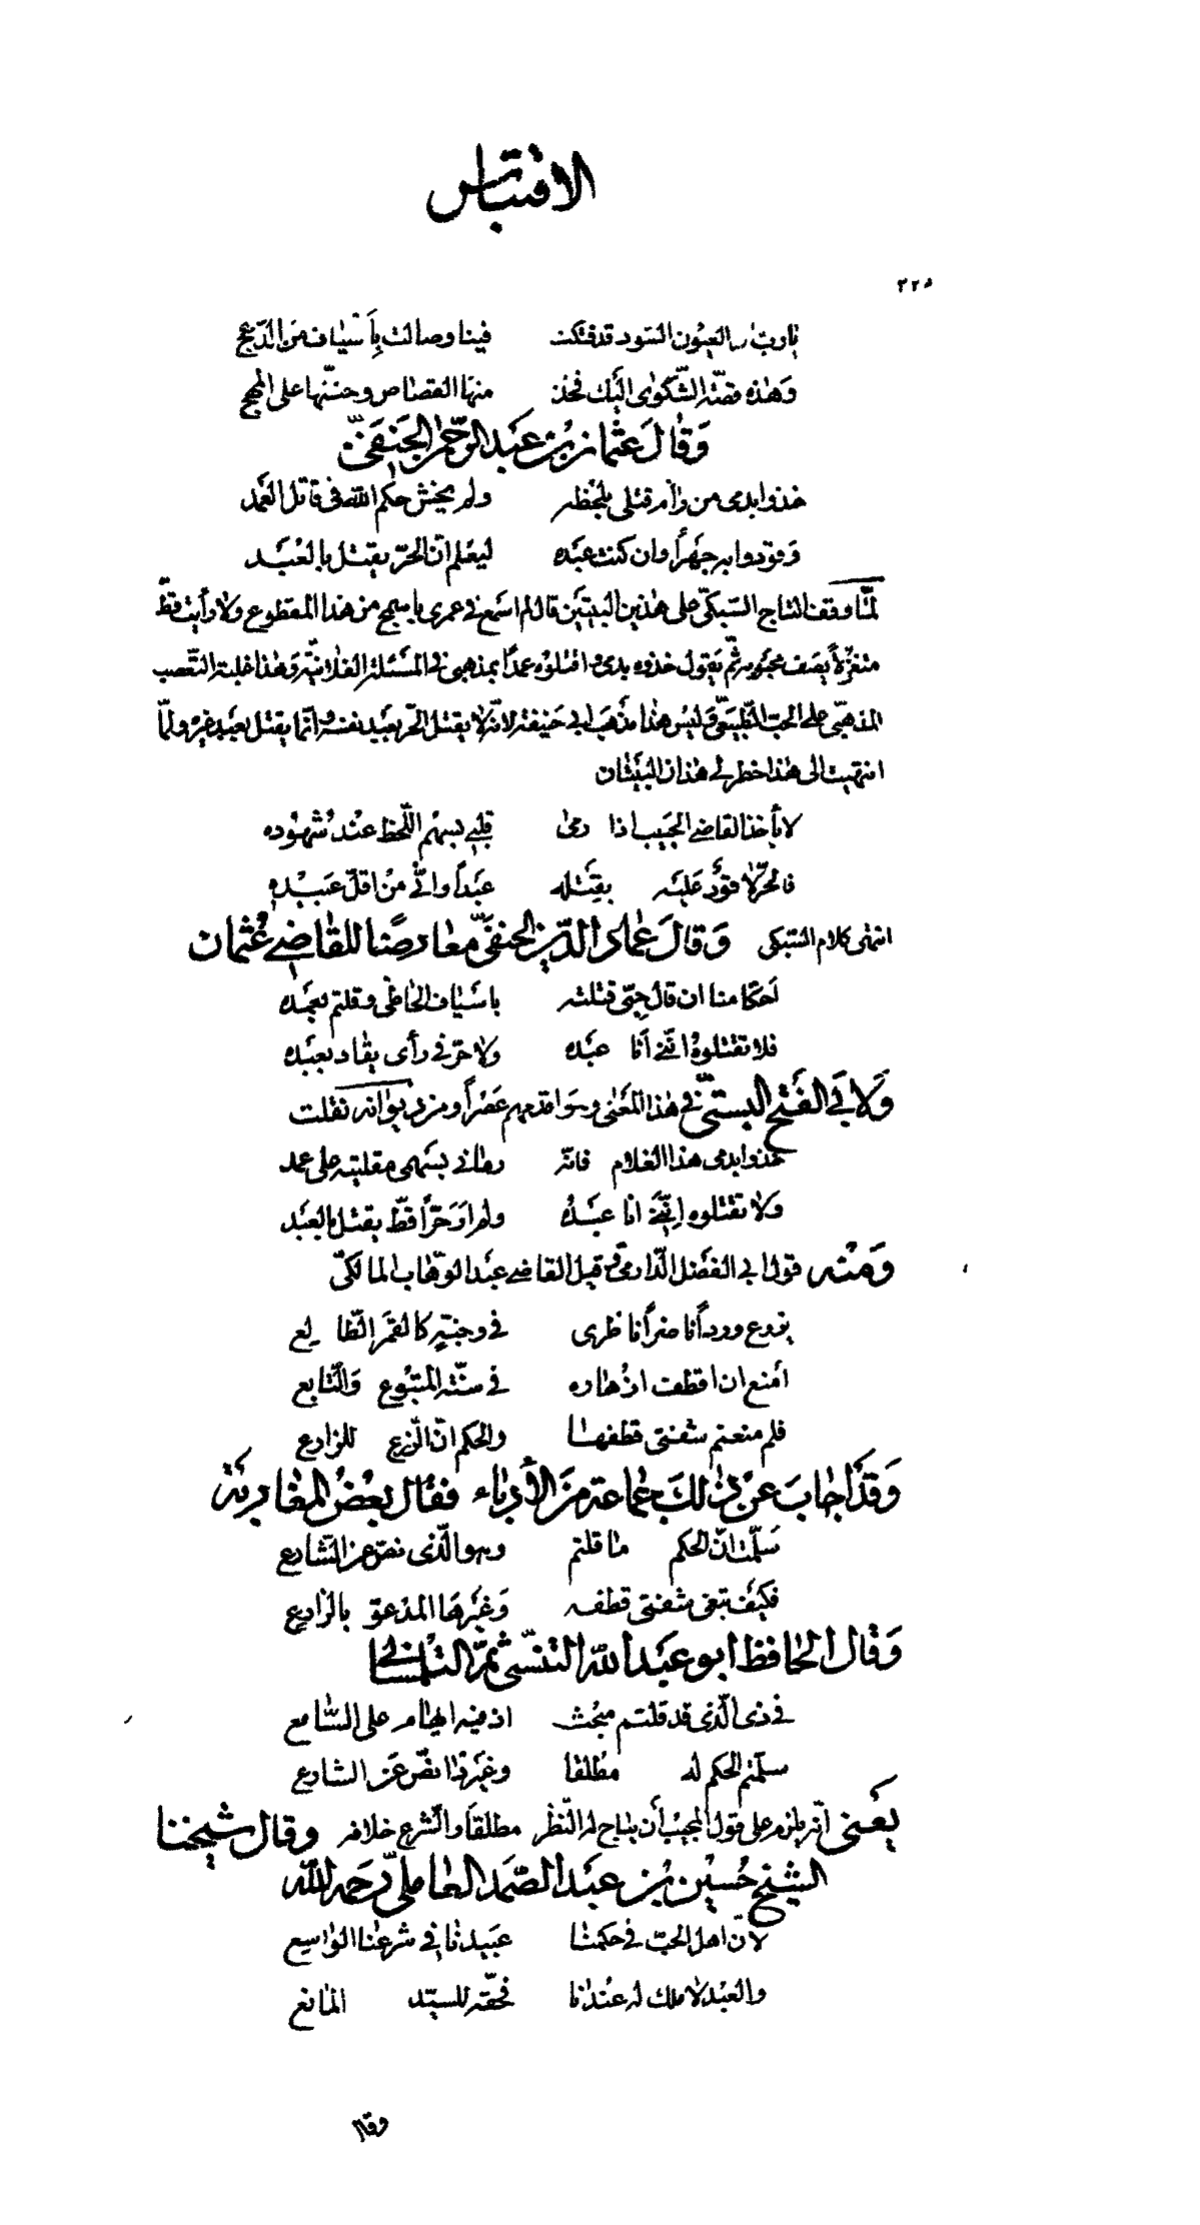 الاقتباس
٢٢٥
يا رب العيون السود قد فتكت فينا وصالت بأسياف من الدعج
وهذه قصّة الشّكوى اليك فخذ منها القصاص وحننها على المهج
وقال عثمان بن عبد الرحمن الحنفي
خذوا بدمى من رام قتلى بلحظه ولم يخش حكم الله فى قاتل العمد
وقودوا به جهراً وان كنت عبده ليعلم انّ الحرّ يقتل بالعبد
لمّا وقف التاج السّبكىّ على هذين البيتين قال لم اسمع فى عمرى باسمج من هذا المقطوع ولا رأيت قطّ
متغزّلاً يصف محبوبه ثمّ يقول خذوه بدمى واقتلوه عمداً بمذهبى فى المسئلة الفلانيّة وهذا غلبة التّعصب
المذهبىّ على الحبّ الطّبيعىّ وليس هذا مذهب ابى حنيفة لانّه لا يقتل الحرّ بعبد نفسه وانّما يقتل بعبد غيره ولمّا
انتهيت الى هذا خطر لى هذان البيتان
لا يأخذ القاضى الحبيب اذا رمى قلبى بسهم اللّحظ عند شهوده
فالحرّ لا قود عليه بقتله عبداً وانّى من اقلّ عبيده
انتهى كلام السّبكى وقال عماد الدّين الحنفىّ معارضا للقاضى عثمان
أحكّامنا ان قال حبّى قتلته باسياف الحاظى وقلتم بعمده
فلا تقتلوه انّنى أنا عبده ولا حرّ فى رأى يقاد بعبده
ولابى الفتح البستىّ فى هذا المعنى وهو اقدمهم عصراً ومن ديوانه نقلت
خذوا بدمى هذا الغلام فانّه رمانى بسهمى مقلتيه على عمد
ولا تقتلوه انّنى انا عبده ولم ار حرّاً قطّ يقتل بالعبد
ومنه قول ابى الفضل الدّارمىّ وقيل القاضى عبد الوهّاب المالكىّ
يزرع ورداً ناضراً ناظرى فى وجنة كالقمر الطّالع
أمنع ان اقطف ازهاره فى سنّة المتبوع والتّابع
فلم منعتم شفتى قطفها والحكم انّ الزّرع للزارع
وقد أجاب عن ذلك جماعة من الأدباء فقال بعض المغاربة
سلّمت انّ الحكم ما قلتم وهو الّذى نصّ عن الشّارع
فكيف تبغى شفتى قطفه وغيرها المدعوّ بالزارع
وقال الحافظ ابو عبد الله التنسّى ثمّ التلمسانى
فى ذى الّذى قد قلتم مبحث اذ فيه ايهام على السّامع
سلّمتم الحكم له مطلقا وغير ذا نصّ عن الشارع
يعنى انّه يلزم على قول المجيب أن يباح له النّظر مطلقاً والشّرع خلافه وقال شيخنا
الشيخ حسين بن عبد الصّمد العاملىّ رحمه الله
لانّ اهل الحبّ فى حكمنا عبيدنا فى شرعنا الواسع
والعبد لا ملك له عندنا فحقّه للسيّد المانع
وقال